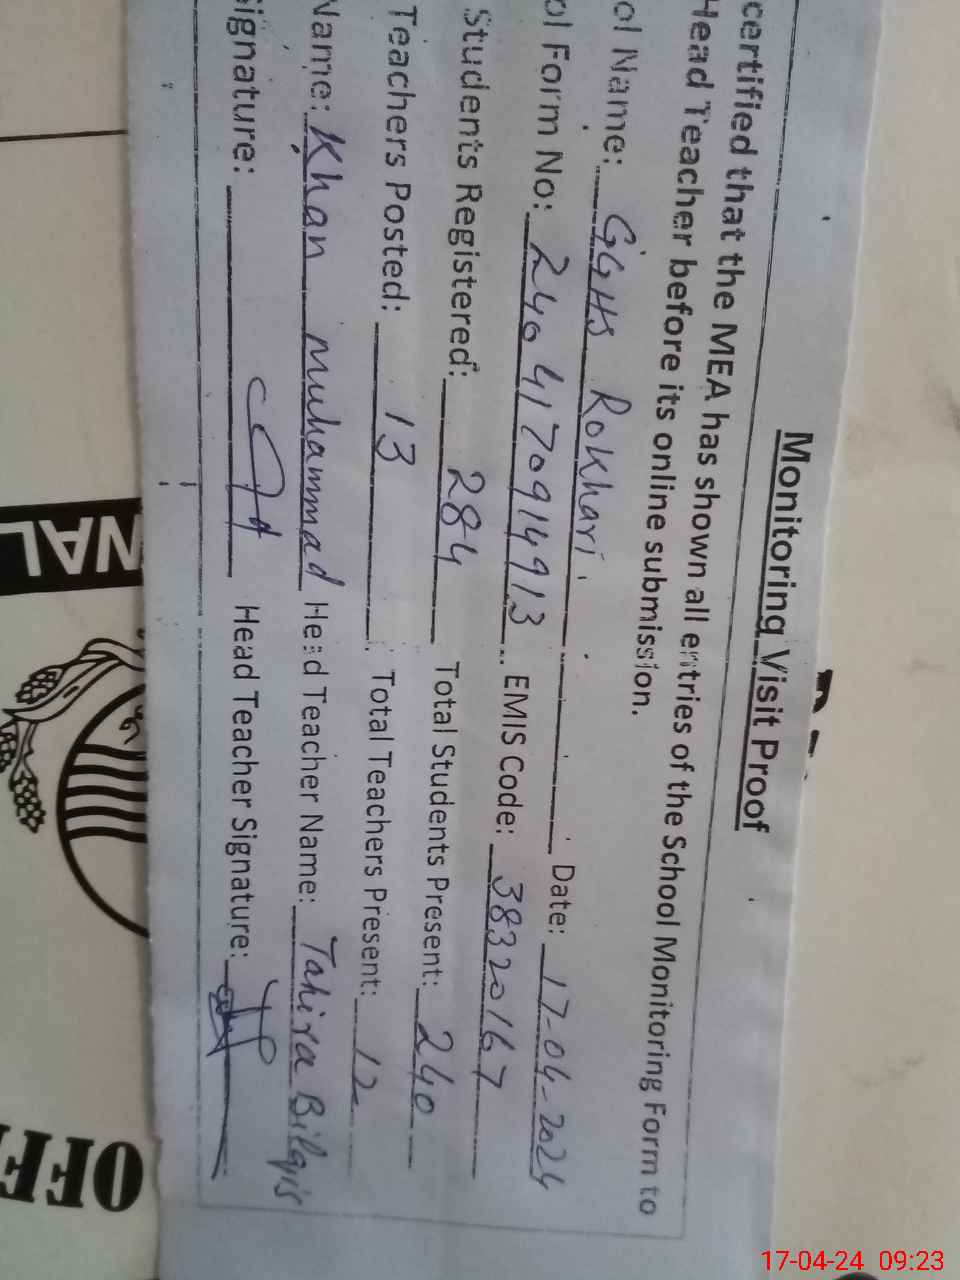 Monitoring Visit Proof
certified that the MEA has shown all entries of the School Monitoring Form to
Head Teacher before its online submission.
ol Name: GGHS Rokhari. Date: 17-04-2024
ol Form No: 2404170914913 EMIS Code: 38320167
Students Registered: 284 Total Students Present: 240
Teachers Posted: 13 Total Teachers Present: 12
Name: Khan Muhammad Head Teacher Name: Tahira Bilqis
ignature: Head Teacher Signature:
NAL
OFF
17-04-24 09:23